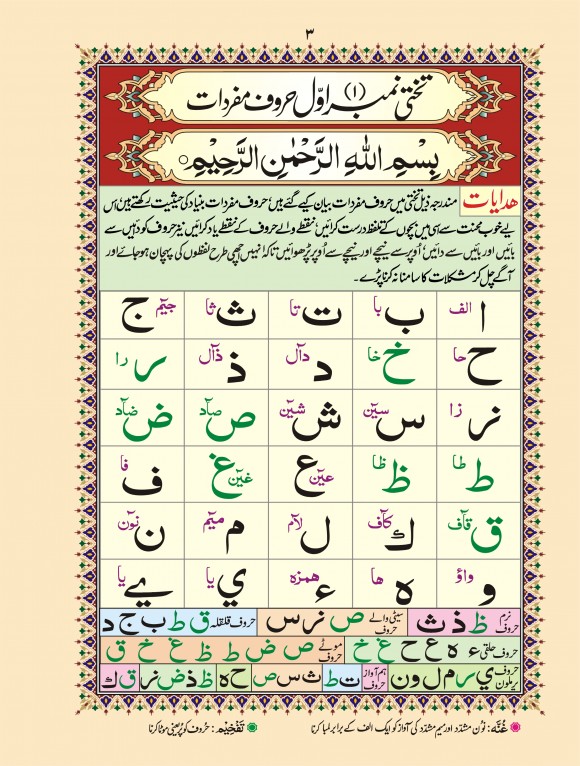 ۳
تختی نمبر (۱) اوّل حروف مفردات
بِسْمِ اللهِ الرَّحْمٰنِ الرَّحِیْمِ
ھدایات مندرجہ ذیل تختی میں حروف مفردات بیان کیے گئے ہیں حروف مفردات بنیاد کی حیثیت رکھتے ہیں اس
لیے خوب محنت سے اسی میں بچوں کے تلفظ درست کرائیں نقطے والے حروف کے نقطے یاد کرائیں نیز حروف کو دائیں سے
بائیں اور بائیں سے دائیں اُوپر سے نیچے اور نیچے سے اُوپر پڑھوائیں تاکہ انہیں اچھی طرح لفظوں کی پہچان ہو جائے اور
آگے چل کر مشکلات کا سامنا نہ کرنا پڑے۔
ا الف ب با ت تا ث ثا ج جیٓم
ح حا خ خا د داۤل ذ ذاۤل ر را
ز زا س سیٓن ش شیٓن ص صاۤد ض ضاۤد
ط طا ظ ظا ع عیٓن غ غیٓن ف فا
ق قاۤف ك کاۤف ل لاۤم م میٓم ن نوٓن
و واؤ ہ ھا ء ھمزہ ي یا ے یا
نرم حروف ظ ذ ث سیٹی والے حروف ص ز س حروف قلقلہ ق ط ب ج د
حروف حلقی ء ہ ع ح غ خ موٹے حروف ص ض ط ظ غ خ ق
حروف یرملون ي ر م ل و ن ہم آواز حروف ت ط ث س ص ح ہ ظ ذ ض ز ق ك
غُنَّه: نوُن مشدّد اور میم مشدّد کی آواز کو ایک الف کے برابر لمبا کرنا تَفْخِیْم: حرُوف کو پُر یعنی موٹا کرنا